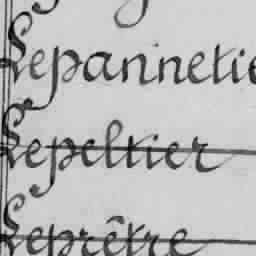 Lepannetie
Lepeltier
Leprêtre